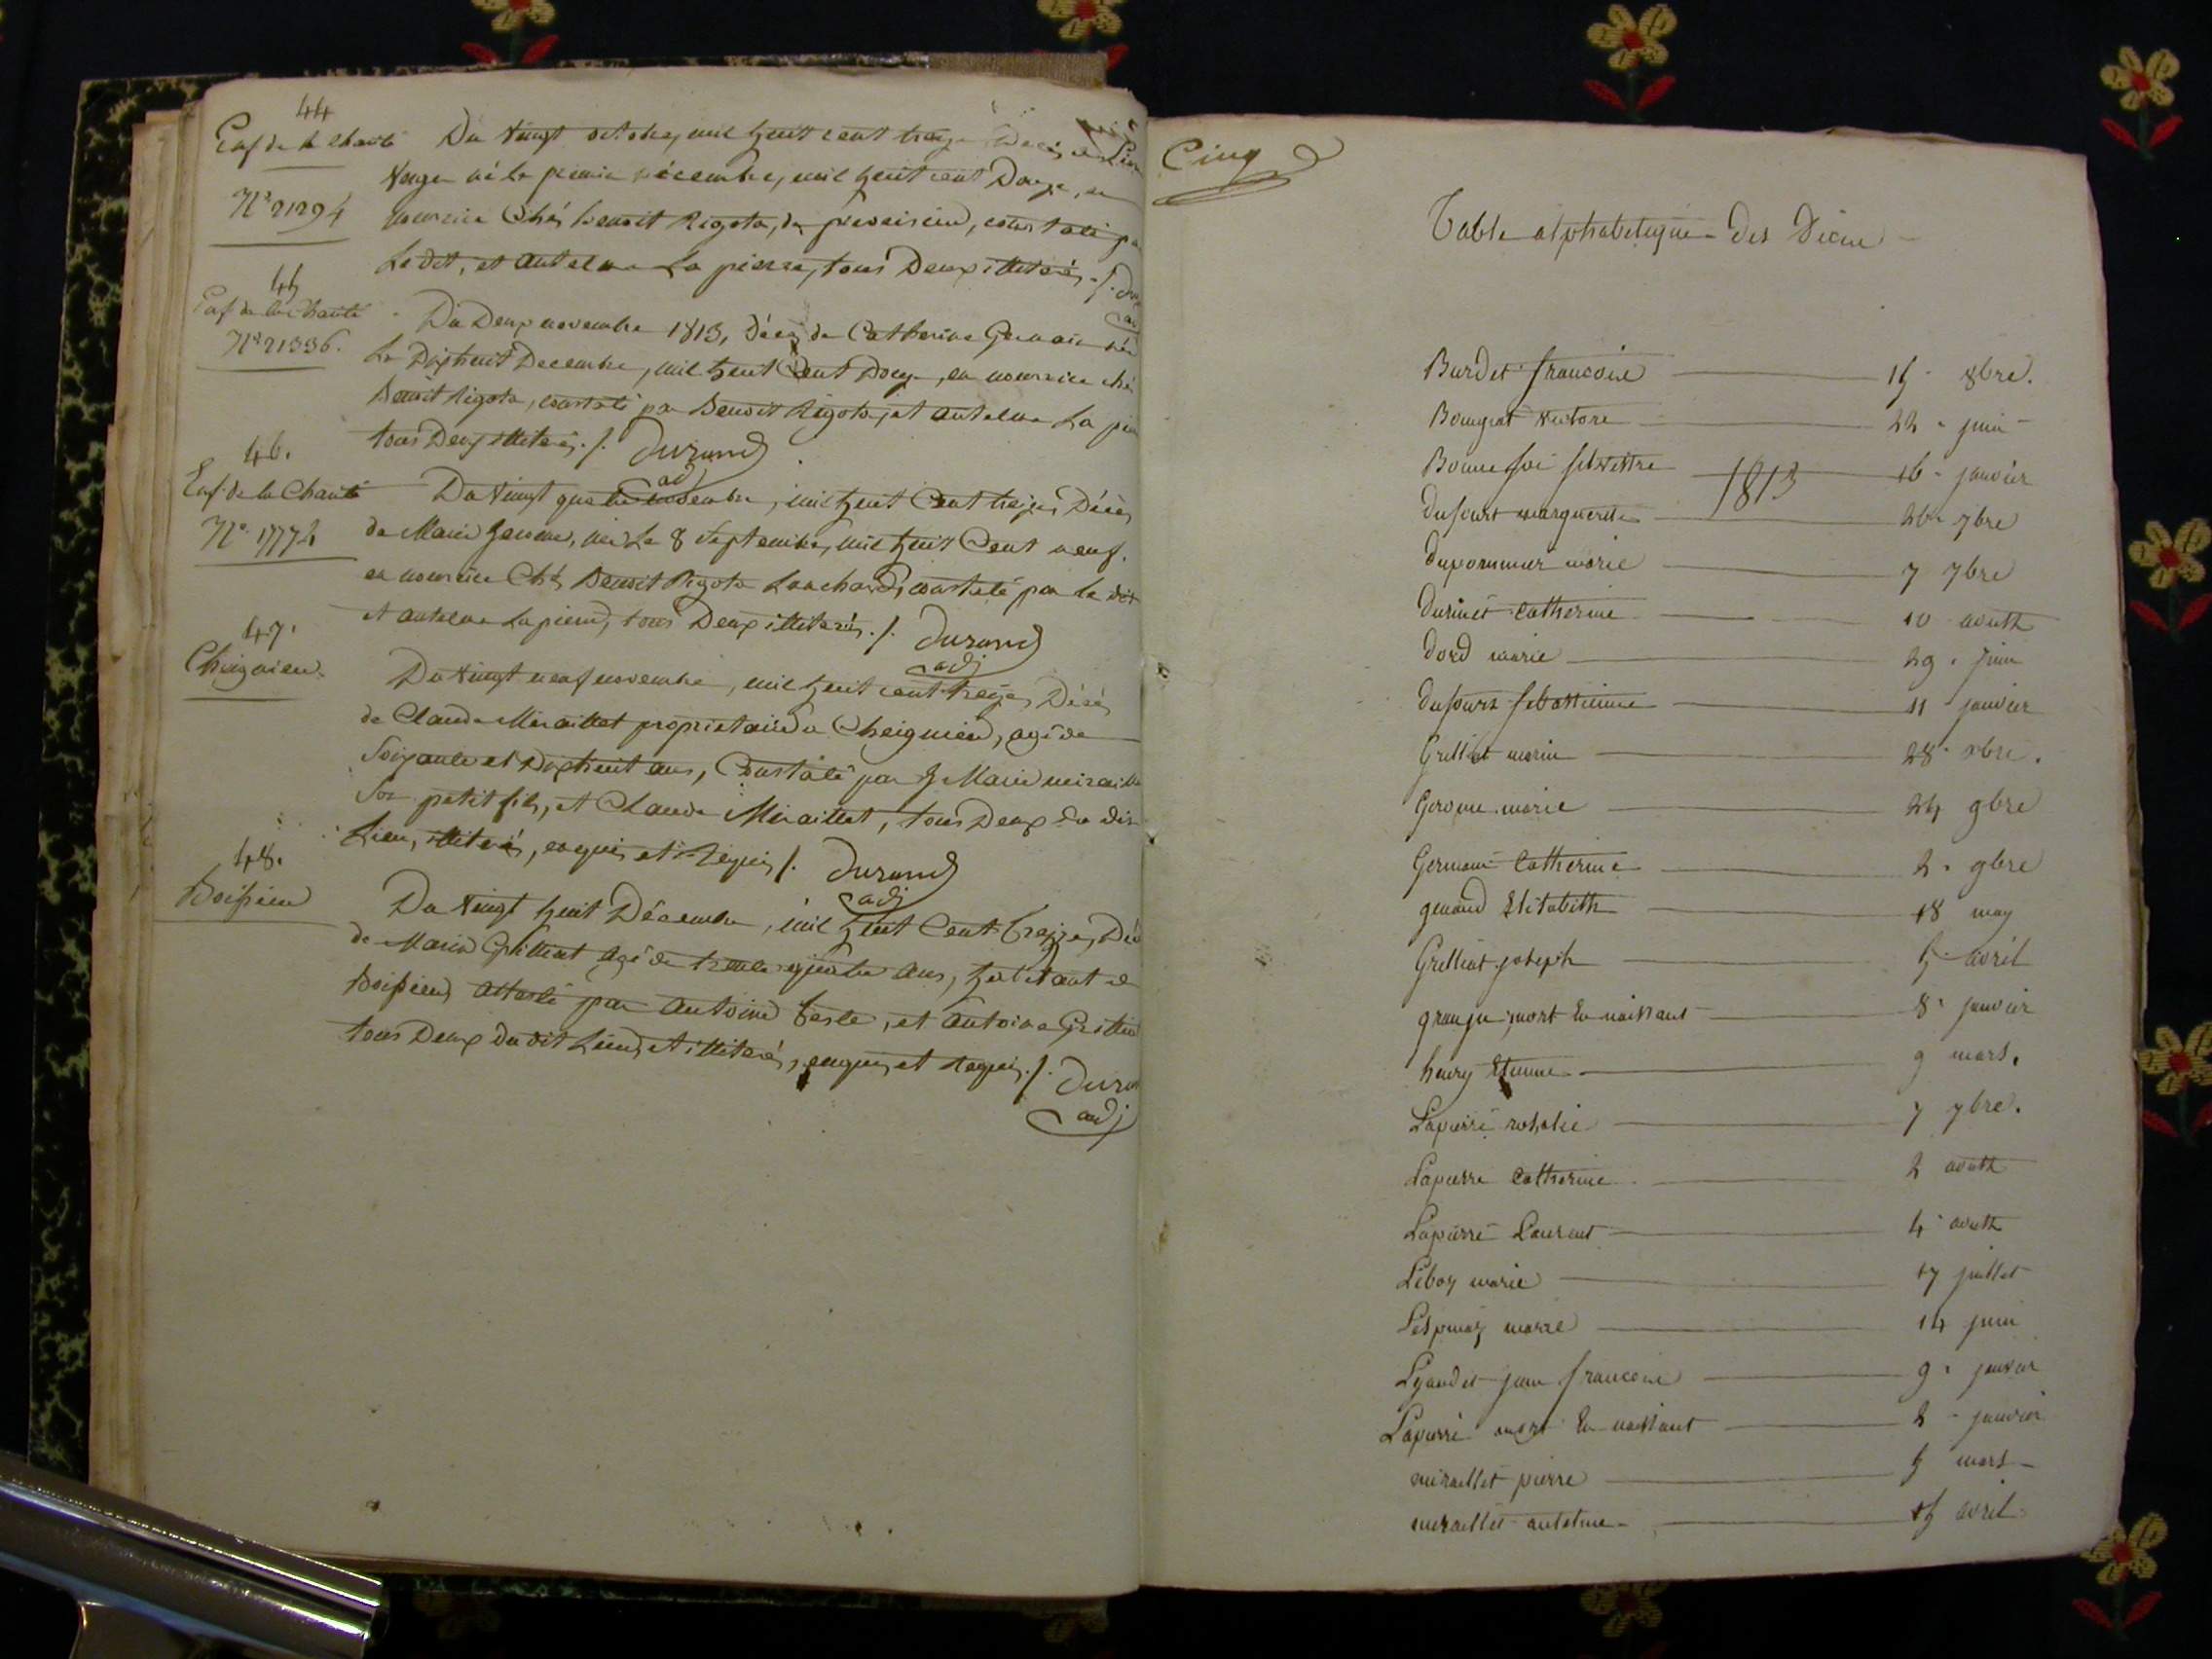 44
Enf de la Charité
N° 21294
Du vingt octobre, mil huit cent treize, Décès de
né le premier décembre, mil huit cent Douze, en
nourrice Chés benoit Rigota, de constaté pa
Le dit, et antelme La pierre, tous Deux illiterés ./.
45
Enf de la Charité
N° 21336.
Du Deux novembre 1813, décès de Catherine Germain née
Le Dixhuit Decembre, mil huit Cent Douze, en nourrice ché
Benoit Rigota, constaté par Benoit Rigota, et antelme La pie
tous Deux illiterés ./. Durand
adj
46.
Enf de la Charité
N° 17774
Du vingt quatre novembre, mil huit Cent treize, Décès
de Marie Gerome, née Le 8 Septembre, mil huit Cent neuf.
en nourrice Chés Benoit Rigota constaté par Le dit
et antelme Lapierre, tous Deux illiterés ./. Durand
adj
47.
Cheignieu
Du vingt neuf novembre, mil huit cent treize, Décès
de Claude Miraillet proprietaire a Cheignieu, agé de
Soixante et Dixhuit ans, Constaté par J Marie miraille
Son petit fils, et Claude Miraillet, tous Deux du dit
Lieu, illiterés, enquis et Requis ./. Durand
adj
48.
Boissieu
Du vingt huit Décembre, mil huit Cent treize, Dé
de Marie Grilliet agé de trente quatre ans, habitant a
Boissieu, attesté par antoine teste, et antoine Grillie
tous Deux du dit Lieu, et illiterés, enquis et Requis ./. Duran
adj
Cinq
Table alphabetique des Décue
Burdet francoise 15 8bre.
Bougrat victore 22 juin
Bonnefoi silvestre 1813 16 janvier
dufourt marguerite 26 7bre
dupommier marie 7 7bre
durmet Catherine 10 aoutt
dord marie 29 juin
dufourt sebastienne 11 janvier
Grilliet marie 28 xbre.
Gerome marie 24 9bre
Germain Catherine 2 9bre
genaud Elisabeth 18 may
Grilliet joseph 5 avril
granju mort En naissant 8 janvier
henry Etienne 9 mars.
Lapierre rosalie 7 7bre.
Lapierre Catherine 2 aoutt
Lapierre Laurent 4 aoutt
Leboz marie 17 juillet
Lespinas marie 14 juin
Lyaudet jean francois 9 janvier
Lapierre mort En naissant 2 janvier
miraillet pierre 5 mars
miraillet antelme 15 avril